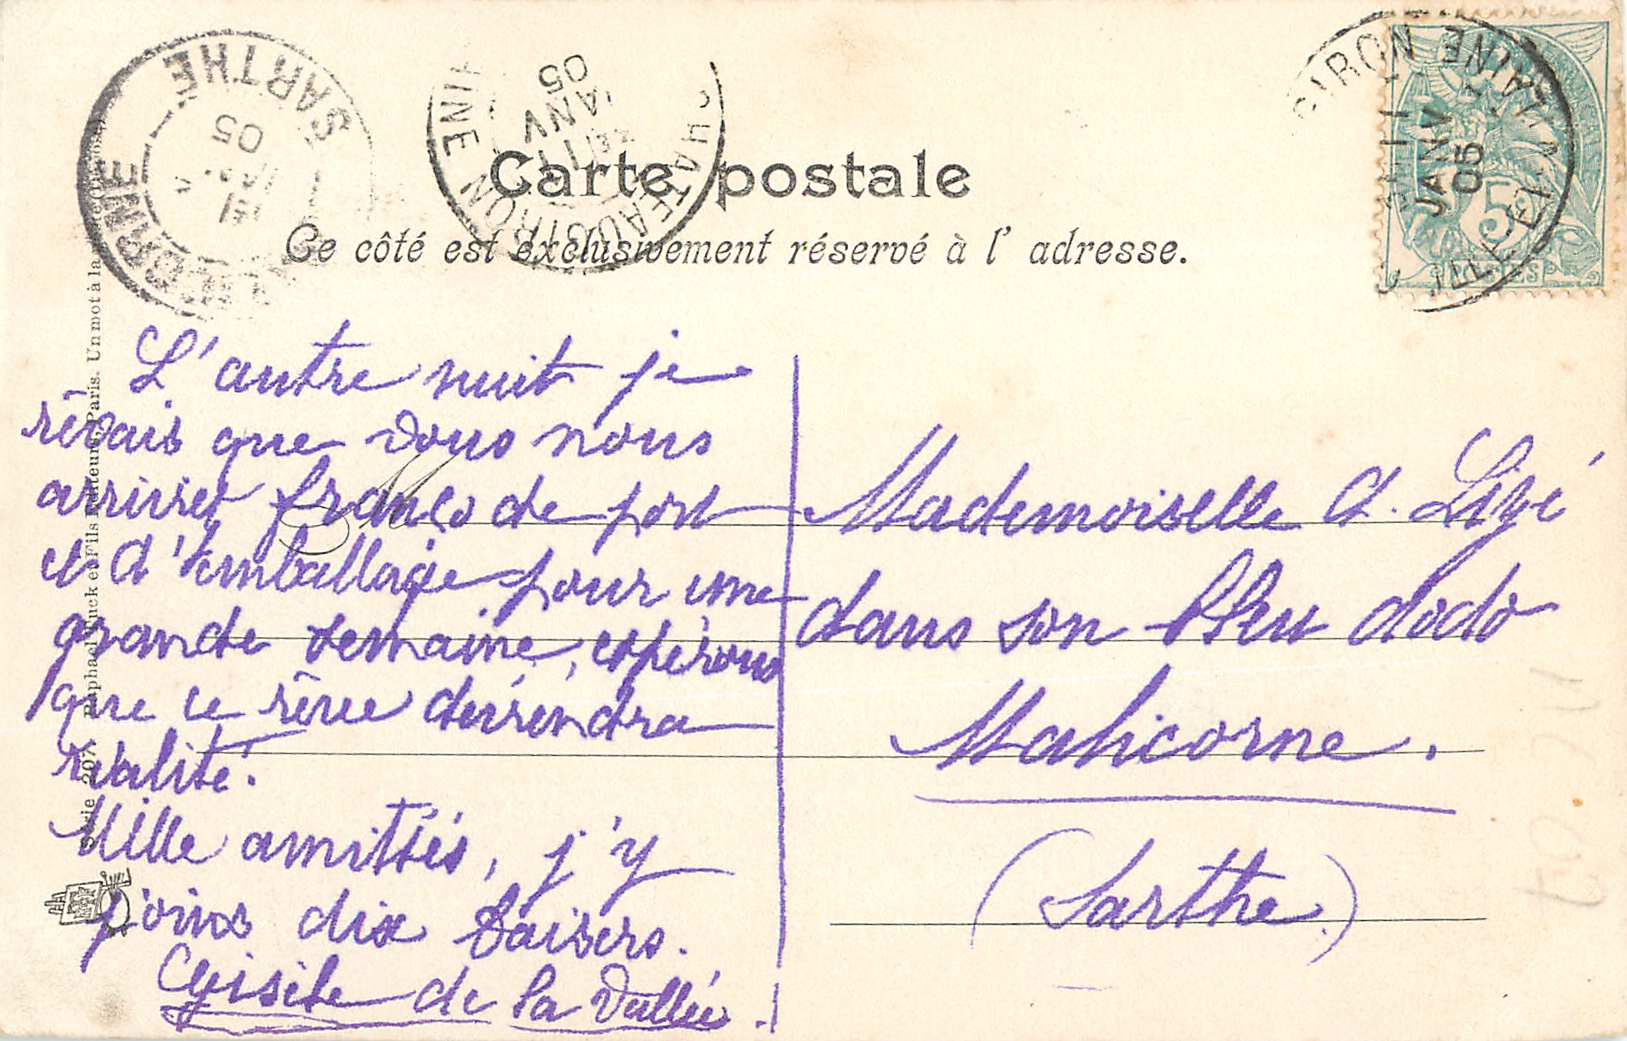 Carte postale
Ce côté est exclusivement réservé à l' adresse.
L'autre nuit je
rêvais que vous nous
arriviez franco de port
et d'emballage pour une
grande semaine, espérons
que ce rêve deviendra
réalité.
Mille amitiés, j'y
joins dix baisers.
Gisèle de la Vallée.
Mademoiselle A. Lizé
dans son bleu dodo
Malicorne.
(Sarthe)
MALICORNE
SARTHE
05
CHATEAUGIRON
JANV
05
GIRON
ILLE-ET-VILAINE
11
JANV
05
5
POSTES
Série 207 Raphael Tuck et Fils Editeurs, Paris. Un mot à la